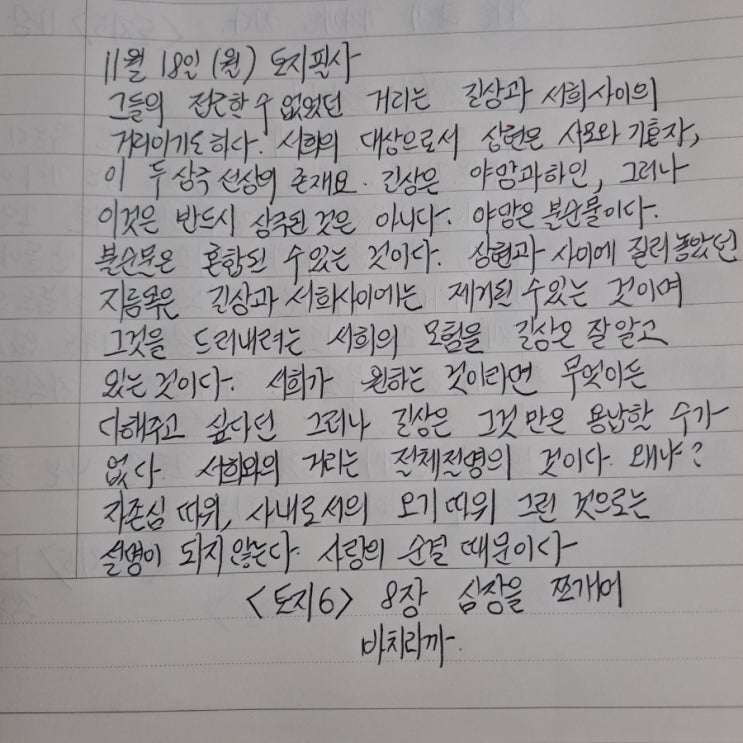 11월 18일 (월) 토지필사
그들의 접근할 수 없었던 거리는 길상과 서희사이의
거리이기도하다. 서희의 대상으로서 상현은 사모와 기혼자,
이 두 상극 선상의 존재요. 길상은 야망과하인, 그러나
이것은 반드시 상극된 것은 아니다. 야망은 불순물이다.
불순물은 혼합될 수있는 것이다. 상현과 사이에 질러놓았던
지름목은 길상과 서희사이에는 제거될 수있는 것이며
그것을 드러내려는 서희의 모험을 길상은 잘 알고
있는 것이다. 서희가 원하는 것이라면 무엇이든
다해주고 싶다던 그러나 길상은 그것 만은 용납할 수가
없다. 서희와의 거리는 절체절명의 것이다. 왜냐?
자존심 따위, 사내로서의 오기 따위 그런 것으로는
설명이 되지않는다. 사랑의 순결 때문이다
<토지6> 8장 심장을 쪼개어
바치리까.